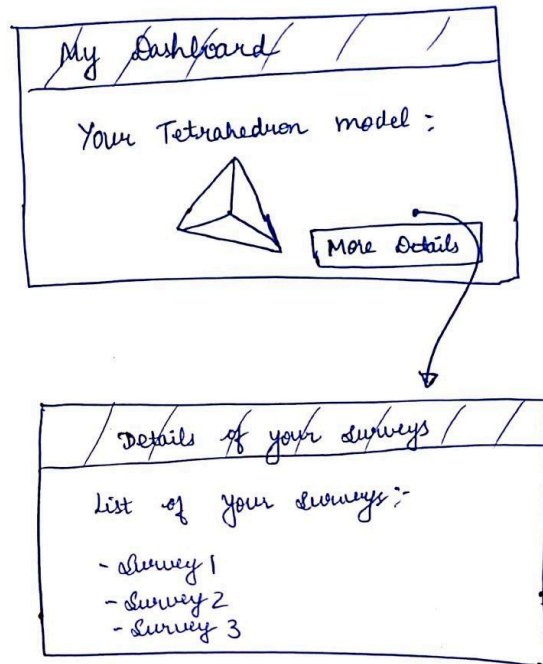 My Dashboard
Your Tetrahedron model :
More Details
Details of your surveys
List of your surveys :-
- Survey 1
- Survey 2
- Survey 3